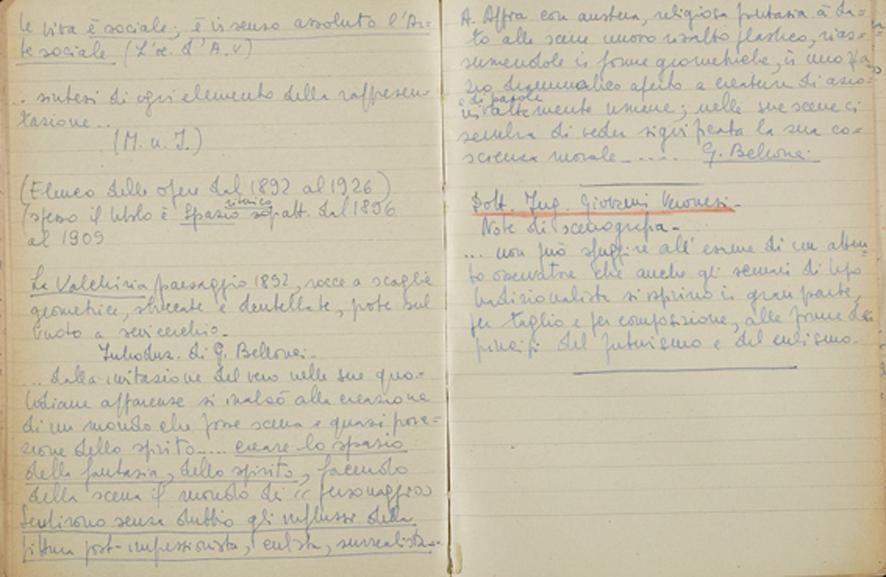 te viva è sociale; è in senso assoluto l'Ar-
te sociale (L'œ. d'A.V)
.. sintesi di ogni elemento della rappresen-
tazione...
(M. u. I.)
(Elenco delle opere dal 1892 al 1926)
(spesso il titolo è Spazio ritmico dal 1896
al 1909
La Valchiria paesaggio 1892, rocce a scaglie
geometrice, e dentellate, poste sul
vuoto a semicerchio.
Introduz. di G. Bellonci.
... dalla imitazione del vero nelle sue quo-
tidiane apparenze si inalzò alla creazione
di un mondo che fosse scena e quasi
zione dello spirito..... creare lo spazio
della fantasia, dello spirito, facendo
della scena il mondo dei personaggi
Sentirono senza dubbio gli influssi della
pittura post-impressionista, cubista, surrealista..
A. Appia con austera, religiosa fantasia à da-
to alle scene nuovo risalto plastico, rias-
sumendole in forme geometriche, in uno spa-
zio drammatico aperto a creature di azio-
e di parole
altamente umane; nelle sue scene ci
sembra di veder significata la sua co-
scienza morale..... G. Bellonci.
Dott. Ing. Giovanni Veronesi.
Note di scenografia.
... non può sfuggire all'esame di un atten-
to osservatore che anche gli scenari di tipo
tradizionalista si ispirino in gran parte,
per taglio e per composizione, alle forme dei
principi del futurismo e del cubismo.